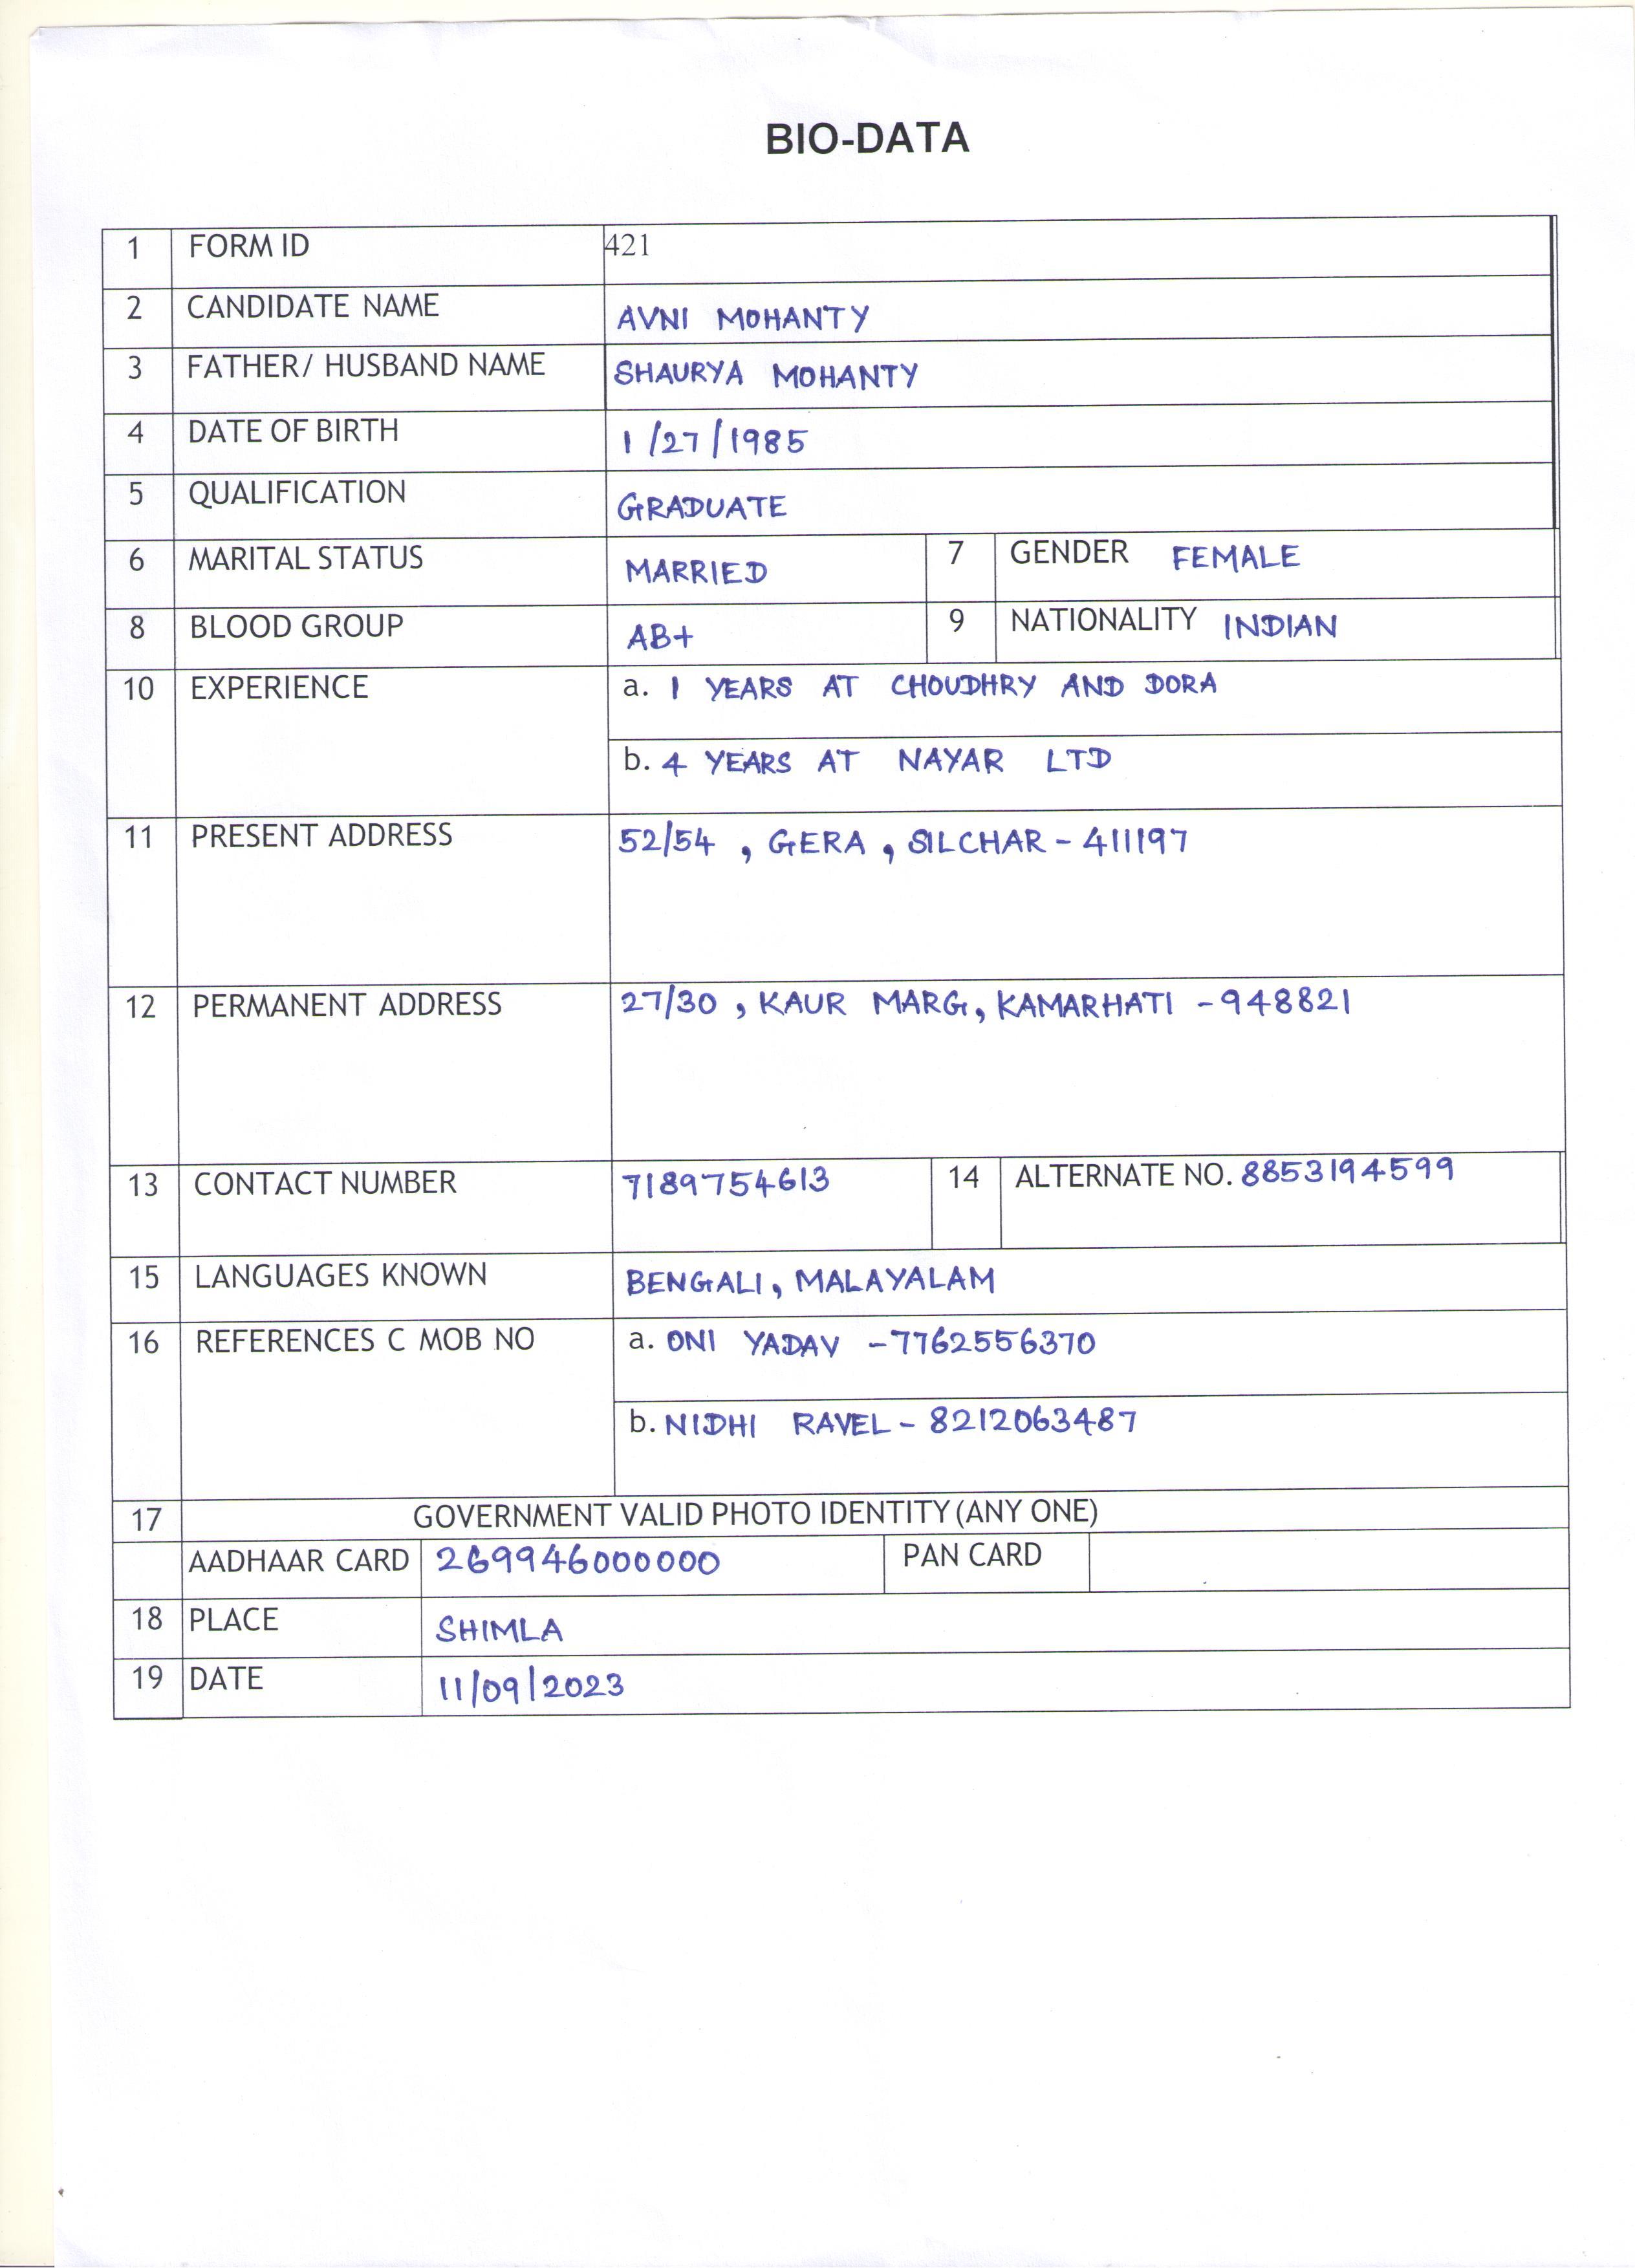 BIO-DATA
1 FORM ID 421
2 CANDIDATE NAME AVNI MOHANTY
3 FATHER/ HUSBAND NAME SHAURYA MOHANTY
4 DATE OF BIRTH 1/27/1985
5 QUALIFICATION GRADUATE
6 MARITAL STATUS MARRIED 7 GENDER FEMALE
8 BLOOD GROUP AB+ 9 NATIONALITY INDIAN
10 EXPERIENCE a. 1 YEARS AT CHOUDHRY AND DORA
b. 4 YEARS AT NAYAR LTD
11 PRESENT ADDRESS 52/54 , GERA , SILCHAR - 411197
12 PERMANENT ADDRESS 27/30 , KAUR MARG, KAMARHATI - 948821
13 CONTACT NUMBER 7189754613 14 ALTERNATE NO. 8853194599
15 LANGUAGES KNOWN BENGALI, MALAYALAM
16 REFERENCES C MOB NO a. ONI YADAV - 7762556370
b. NIDHI RAVEL - 8212063487
17 GOVERNMENT VALID PHOTO IDENTITY (ANY ONE)
AADHAAR CARD 269946000000 PAN CARD
18 PLACE SHIMLA
19 DATE 11/09/2023